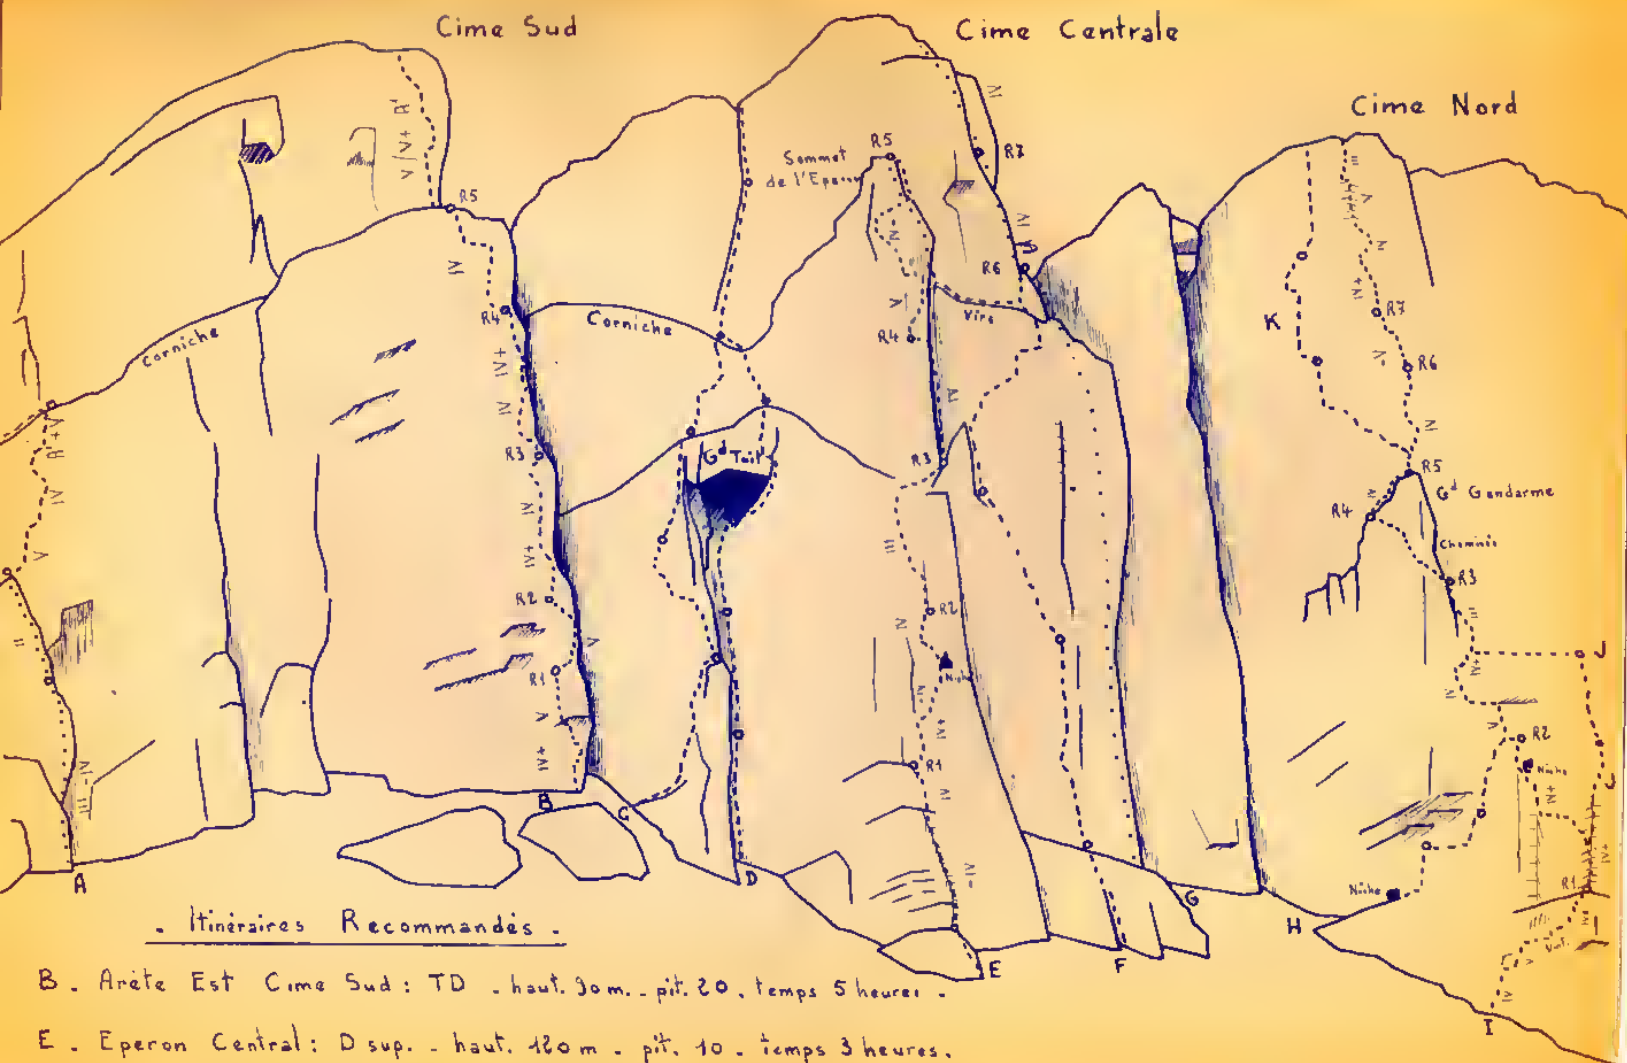 Cime Sud
Cime Centrale
Cime Nord
V/V+ A1
R5
IV
R4
IV+
IV
R3
IV
IV+
R2
V
R1
V
IV+
B
Corniche
Corniche
A+V
IV
V
II
IV-
III
A
Sommet
de l'Eperon
R5
IV
R7
IV
R6
IV
V
R4
Vire
IV
R3
Gd Toit
III
R2
IV
Niche
IV+
R1
IV
IV-
C
D
E
F
G
H
I
III
V
IV
IV+
R7
V
R6
IV
K
R5
Gd Gendarme
R4
Cheminée
R3
III
IV+
IV
J
V
R2
Niche
IV+
IV+
R1
Niche
V
IV
. Itinéraires Recommandés .
B . Arète Est Cime Sud : TD . haut. 90 m. . pit. 20 . temps 5 heures .
E . Eperon Central : D sup. . haut. 120 m . pit. 10 . temps 3 heures .